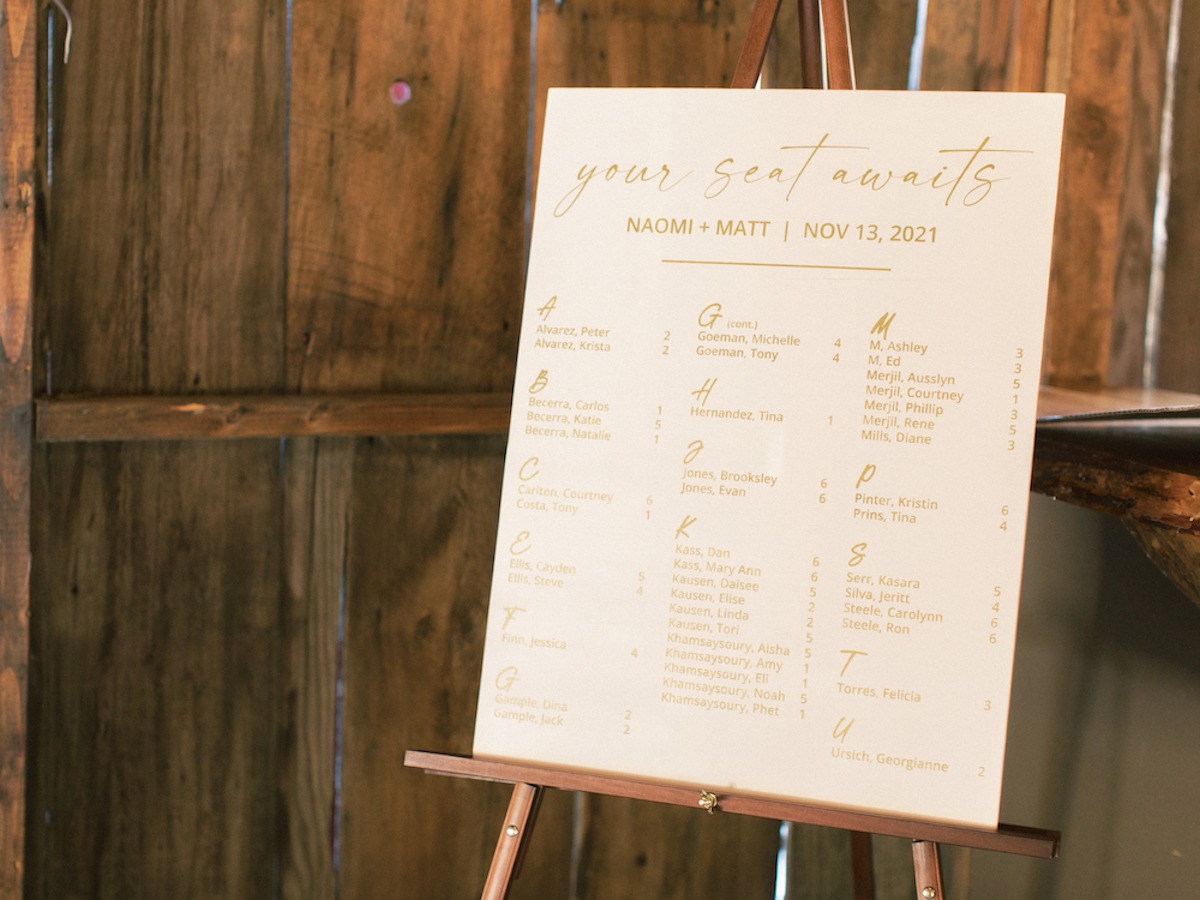 your seat awaits
NAOMI + MATT | NOV 13, 2021
A
Alvarez, Peter 2
Alvarez, Krista 2
B
Becerra, Carlos 1
Becerra, Katie 5
Becerra, Natalie 1
C
Carlton, Courtney 6
Costa, Tony 1
E
Ellis, Cayden 5
Ellis, Steve 4
F
Finn, Jessica 4
G
Gample, Dina 2
Gample, Jack 2
G (cont.)
Goeman, Michelle 4
Goeman, Tony 4
H
Hernandez, Tina 1
J
Jones, Brooksley 6
Jones, Evan 6
K
Kass, Dan 6
Kass, Mary Ann 6
Kausen, Daisee 5
Kausen, Elise 2
Kausen, Linda 2
Kausen, Tori 5
Khamsaysoury, Aisha 5
Khamsaysoury, Amy 1
Khamsaysoury, Eli 1
Khamsaysoury, Noah 5
Khamsaysoury, Phet 1
M
M, Ashley 3
M, Ed 3
Merjil, Ausslyn 5
Merjil, Courtney 1
Merjil, Phillip 3
Merjil, Rene 5
Mills, Diane 3
P
Pinter, Kristin 6
Prins, Tina 4
S
Serr, Kasara 5
Silva, Jeritt 4
Steele, Carolynn 6
Steele, Ron 6
T
Torres, Felicia 3
U
Ursich, Georgianne 2